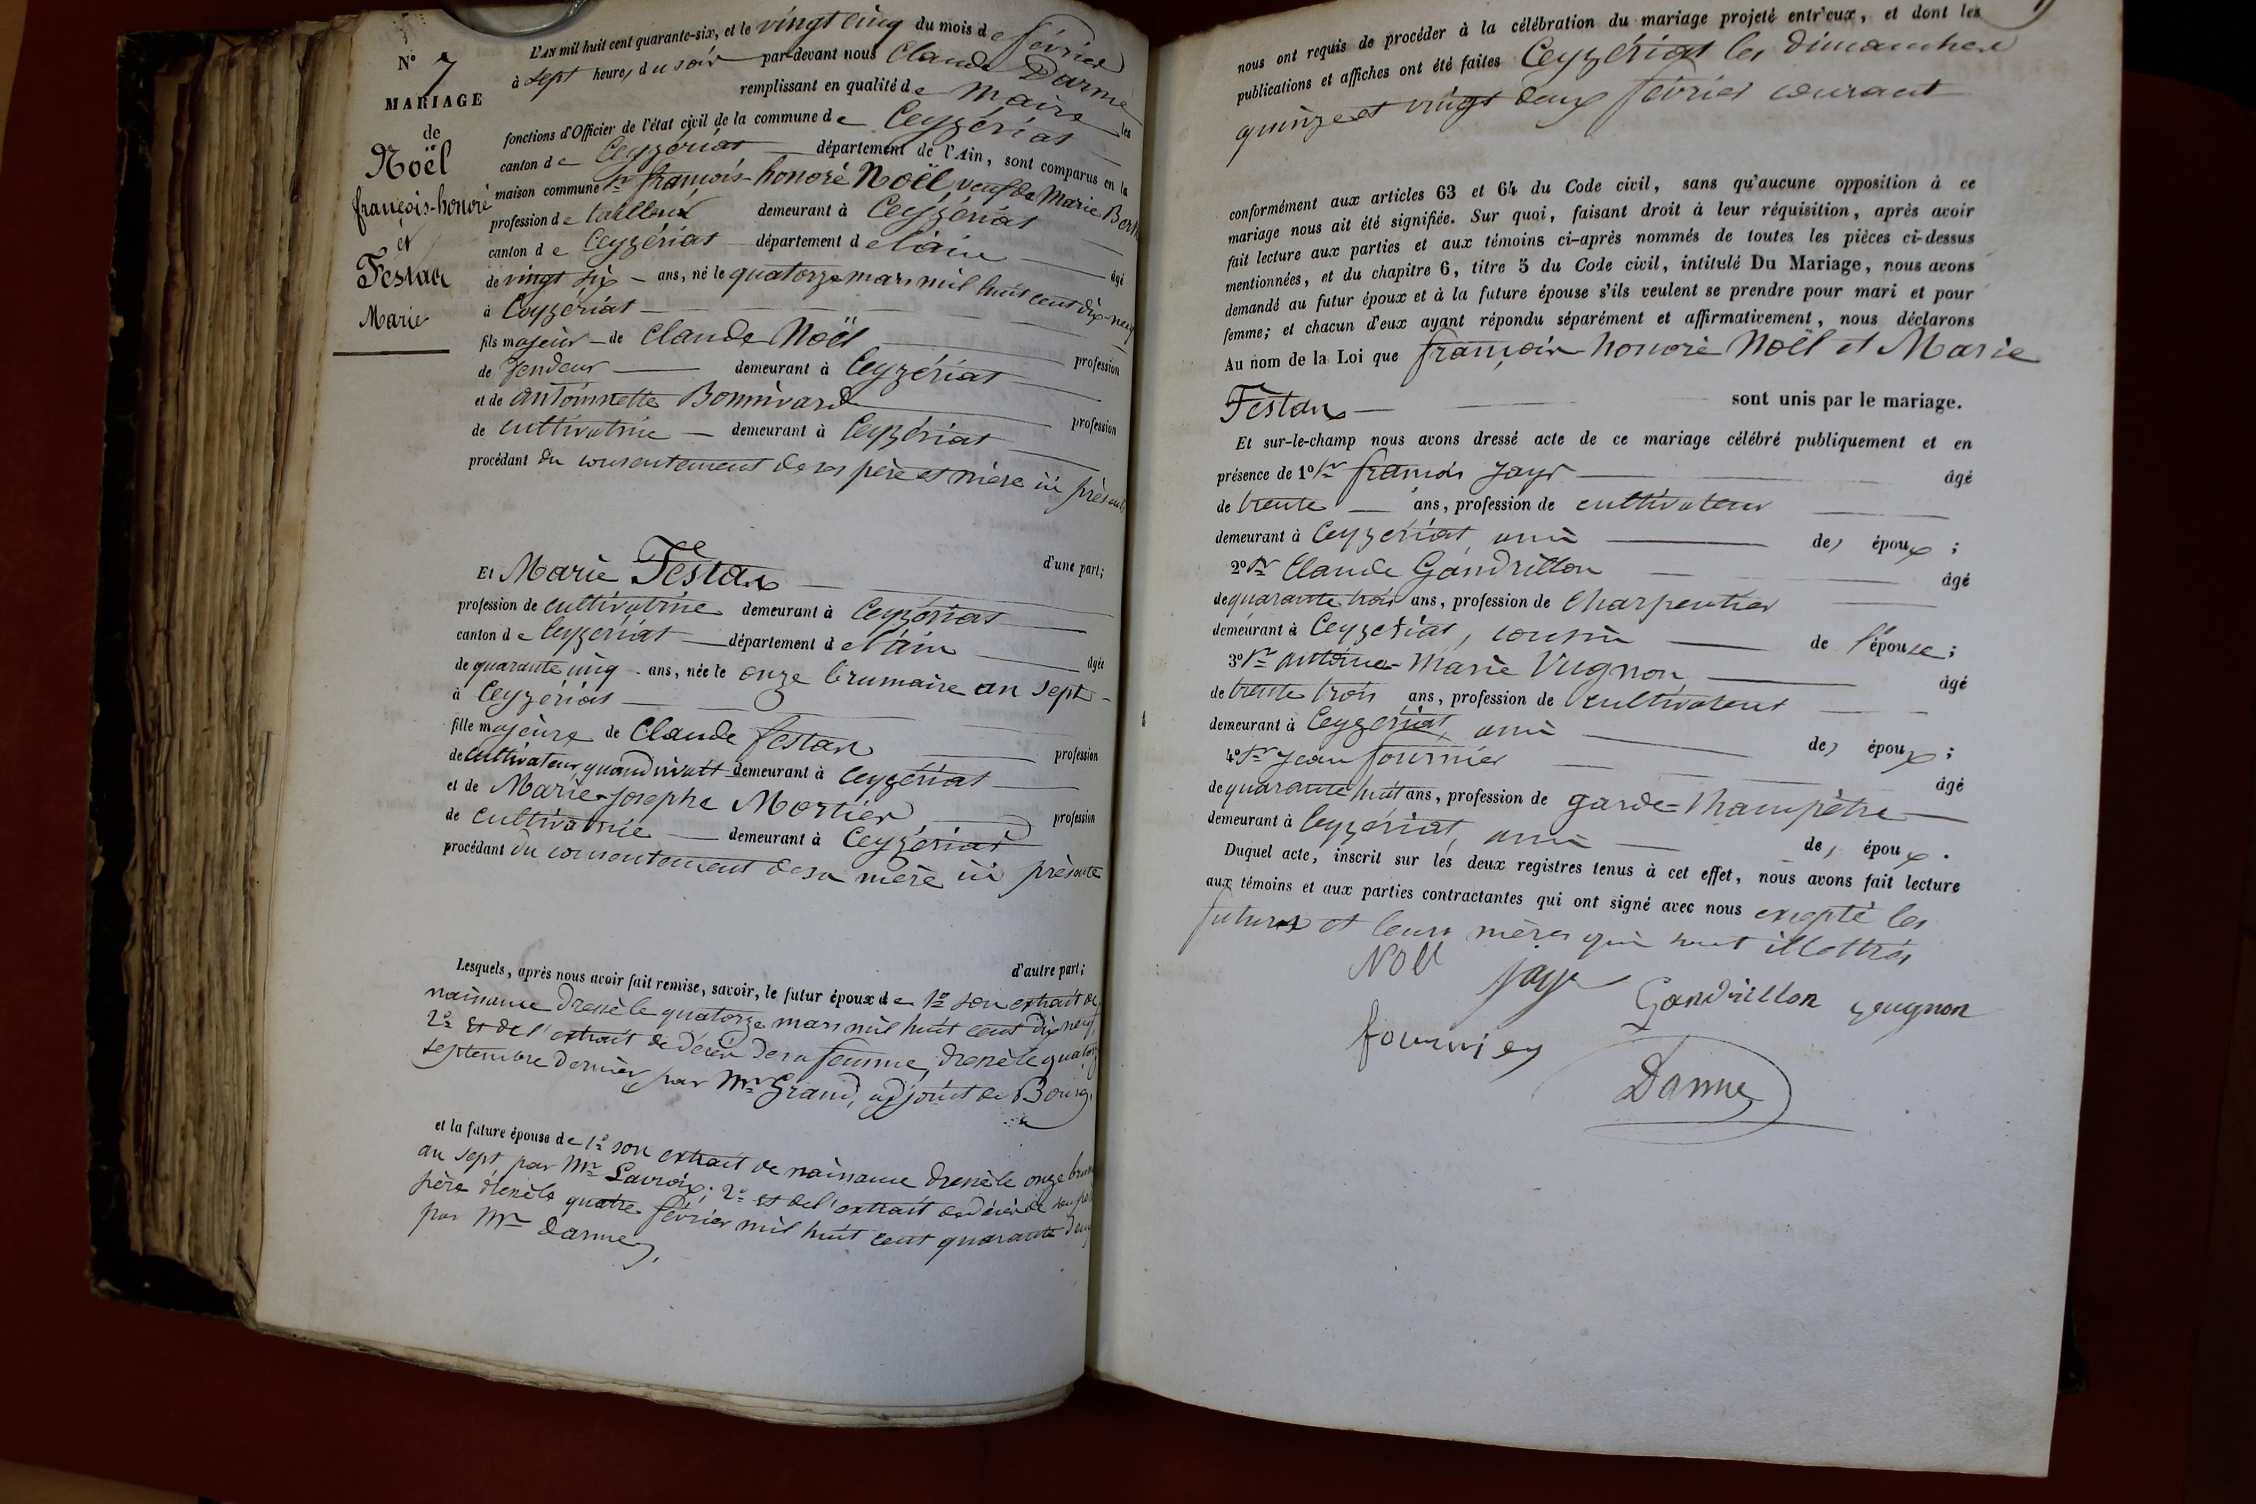 N° 7
MARIAGE
de
Noël
françois-honoré
et
Festan
Marie
L'AN mil huit cent quarante-six, et le vingt cinq du mois de février
à sept heures du soir par-devant nous Claude Darme
remplissant en qualité de Maire les
fonctions d'Officier de l'état civil de la commune de Ceyzériat
canton de Ceyzériat département de l'Ain, sont comparus en la
maison commune Sr françois-honoré Noël veuf de Marie
profession de tailleur demeurant à Ceyzériat
canton de Ceyzériat département de l'ain âgé
de vingt six ans, né le quatorze mars mil huit cent dix-neuf
à Ceyzériat
fils majeur de Claude Noël profession
de demeurant à Ceyzériat
et de antoinette Bonnivard profession
de cultivatrice demeurant à Ceyzériat
procédant du consentement de ses père et mère ici présents
d'une part;
Et Marie Festan
profession de cultivatrice demeurant à Ceyzériat
canton de Ceyzériat département de l'ain âgée
de quarante cinq ans, née le onze brumaire an sept
à Ceyzériat
fille majeure de Claude festan profession
de cultivateur quand vivait demeurant à Ceyzériat
et de Marie-Josephe Mortier profession
de cultivatrice demeurant à Ceyzériat
procédant du consentement de sa mère ici présente
d'autre part;
Lesquels, après nous avoir fait remise, savoir, le futur époux de 1° son extrait de
naissance dressé le quatorze mars mil huit cent dix neuf,
2° Et de l'extrait de décès de sa femme, dressé le quatorze
septembre dernier par Mr Grand, adjoint de Bourg,
et la future épouse de 1° son extrait de naissance dressé le onze
an sept par Mr Lacroix; 2° Et de l'extrait de décès de son
père dressé le quatre février mil huit cent quarante deux
par Mr Darme.
nous ont requis de procéder à la célébration du mariage projeté entr'eux, et dont les
publications et affiches ont été faites Ceyzériat les dimanches
quinze et vingt deux février courant
conformément aux articles 63 et 64 du Code civil, sans qu'aucune opposition à ce
mariage nous ait été signifiée. Sur quoi, faisant droit à leur réquisition, après avoir
fait lecture aux parties et aux témoins ci-après nommés de toutes les pièces ci-dessus
mentionnées, et du chapitre 6, titre 5 du Code civil, intitulé Du Mariage, nous avons
demandé au futur époux et à la future épouse s'ils veulent se prendre pour mari et pour
femme; et chacun d'eux ayant répondu séparément et affirmativement, nous déclarons
Au nom de la Loi que françois-honoré Noël et Marie
Festan sont unis par le mariage.
Et sur-le-champ nous avons dressé acte de ce mariage célébré publiquement et en
présence de 1° Sr françois Jayr âgé
de trente ans, profession de cultivateur
demeurant à Ceyzériat, ami des époux;
2° Sr Claude Gandrillon âgé
de quarante trois ans, profession de Charpentier
demeurant à Ceyzériat, cousin de l'épouse;
3° Sr antoine-Marie Vugnon âgé
de trente trois ans, profession de cultivateur
demeurant à Ceyzériat, ami des époux;
4° Sr Jean fournier âgé
de quarante huit ans, profession de garde-Champêtre
demeurant à Ceyzériat, ami des époux.
Duquel acte, inscrit sur les deux registres tenus à cet effet, nous avons fait lecture
aux témoins et aux parties contractantes qui ont signé avec nous excepté les
futurs et leurs mères qui sont illettrés
Noël
Jayr
Gandrillon
fournier
Darme